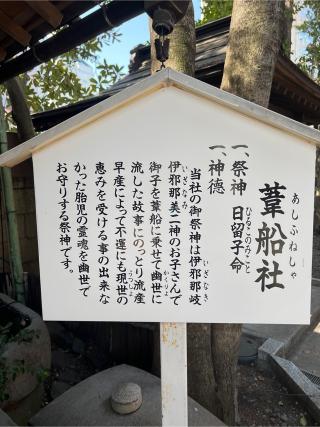 葦船社
あしふねしゃ
一、祭神 日留子命
ひるこのみこと
一、神徳
当社の御祭神は伊邪那岐
いざなぎ
伊邪那美二神のお子さんで
いざなみ
御子を葦船に乗せて幽世に
かくりよ
流した故事にのっとり流産
早産によって不運にも現世の
うつしよ
恵みを受ける事の出来な
かった胎児の霊魂を幽世で
お守りする祭神です。